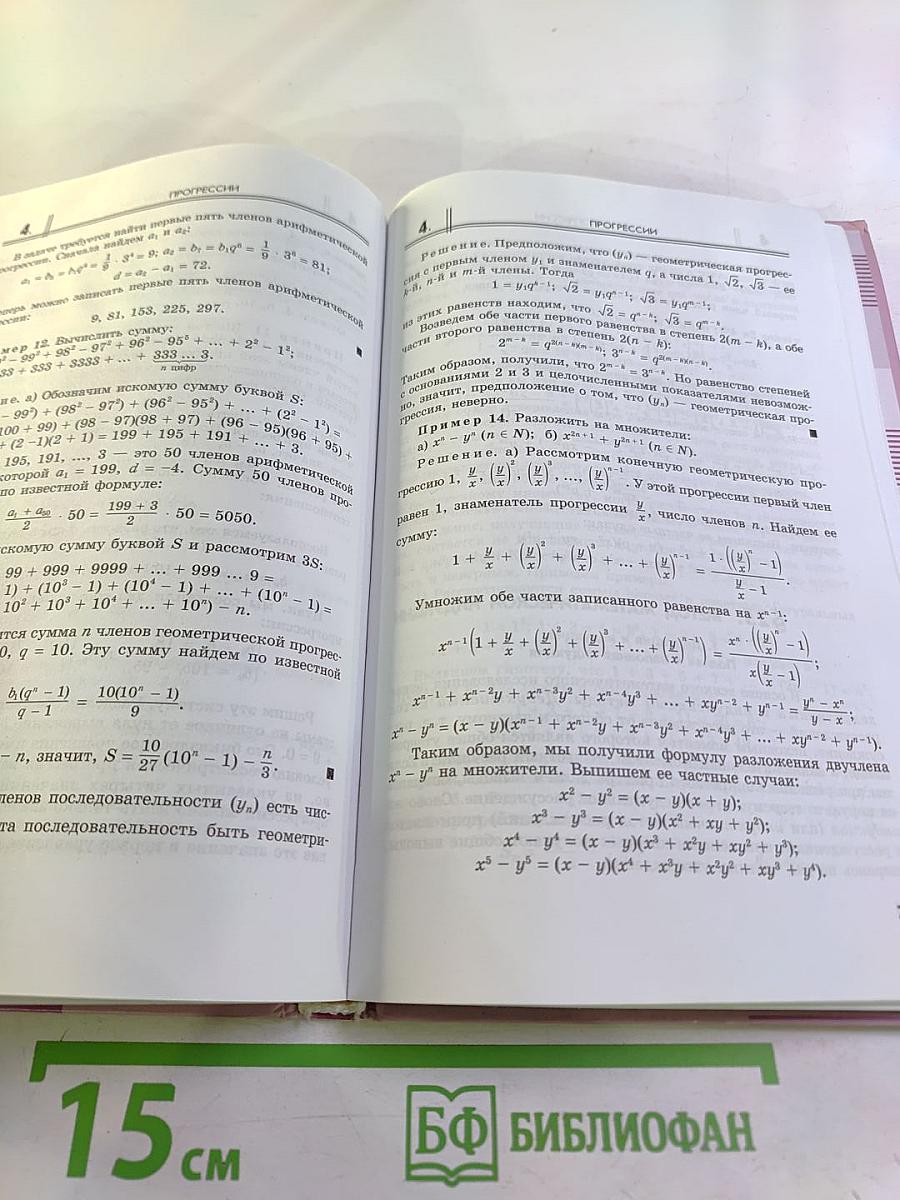 4.
ПРОГРЕССИИ
В задаче требуется найти первые пять членов арифметической
прогрессии. Сначала найдем a₁ и a₂:
a₁ = b₅ = b₁q⁴ = 1/9 · 3⁴ = 9; a₂ = b₇ = b₁q⁶ = 1/9 · 3⁶ = 81;
d = a₂ − a₁ = 72.
можно записать первые пять членов арифметической
9, 81, 153, 225, 297.
12. Вычислить сумму:
− 99² + 98² − 97² + 96² − 95² + ... + 2² − 1²;
33 + 333 + 3333 + ... + 333 ... 3.
n цифр
а) Обозначим искомую сумму буквой S:
− 99²) + (98² − 97²) + (96² − 95²) + ... + (2² − 1²) =
100 + 99) + (98 − 97)(98 + 97) + (96 − 95)(96 + 95) +
+ (2 −1)(2 + 1) = 199 + 195 + 191 + ... + 3.
195, 191, ..., 3 — это 50 членов арифметической
которой a₁ = 199, d = −4. Сумму 50 членов про-
по известной формуле:
(a₁ + a₅₀)/2 · 50 = (199 + 3)/2 · 50 = 5050.
искомую сумму буквой S и рассмотрим 3S:
99 + 999 + 9999 + ... + 999 ... 9 =
1) + (10³ − 1) + (10⁴ − 1) + ... + (10ⁿ − 1) =
10² + 10³ + 10⁴ + ... + 10ⁿ) − n.
сумма n членов геометрической прогрес-
0, q = 10. Эту сумму найдем по известной
b₁(qⁿ − 1)/(q − 1) = 10(10ⁿ − 1)/9.
− n, значит, S = 10/27 (10ⁿ − 1) − n/3.
членов последовательности (yₙ) есть чис-
последовательность быть геометри-
4.
ПРОГРЕССИИ
Решение. Предположим, что (yₙ) — геометрическая прогрес-
сия с первым членом y₁ и знаменателем q, а числа 1, √2, √3 — ее
k-й, n-й и m-й члены. Тогда
1 = y₁qᵏ⁻¹; √2 = y₁qⁿ⁻¹; √3 = y₁qᵐ⁻¹;
из этих равенств находим, что √2 = qⁿ⁻ᵏ; √3 = qᵐ⁻ᵏ.
Возведем обе части первого равенства в степень 2(m − k), а обе
части второго равенства в степень 2(n − k):
2ᵐ⁻ᵏ = q²⁽ⁿ⁻ᵏ⁾⁽ᵐ⁻ᵏ⁾; 3ⁿ⁻ᵏ = q²⁽ᵐ⁻ᵏ⁾⁽ⁿ⁻ᵏ⁾.
Таким образом, получили, что 2ᵐ⁻ᵏ = 3ⁿ⁻ᵏ. Но равенство степеней
с основаниями 2 и 3 и целочисленными показателями невозмож-
но, значит, предположение о том, что (yₙ) — геометрическая про-
грессия, неверно.
Пример 14. Разложить на множители:
а) xⁿ − yⁿ (n ∈ N); б) x²ⁿ⁺¹ + y²ⁿ⁺¹ (n ∈ N).
Решение. а) Рассмотрим конечную геометрическую про-
грессию 1, y/x, (y/x)², (y/x)³, ..., (y/x)ⁿ⁻¹. У этой прогрессии первый член
равен 1, знаменатель прогрессии y/x, число членов n. Найдем ее
сумму:
1 + y/x + (y/x)² + (y/x)³ + ... + (y/x)ⁿ⁻¹ = 1·((y/x)ⁿ − 1)/(y/x − 1).
Умножим обе части записанного равенства на xⁿ⁻¹:
xⁿ⁻¹(1 + y/x + (y/x)² + (y/x)³ + ... + (y/x)ⁿ⁻¹) = xⁿ·((y/x)ⁿ − 1)/(x(y/x − 1));
xⁿ⁻¹ + xⁿ⁻²y + xⁿ⁻³y² + xⁿ⁻⁴y³ + ... + xyⁿ⁻² + yⁿ⁻¹ = (yⁿ − xⁿ)/(y − x);
xⁿ − yⁿ = (x − y)(xⁿ⁻¹ + xⁿ⁻²y + xⁿ⁻³y² + xⁿ⁻⁴y³ + ... + xyⁿ⁻² + yⁿ⁻¹).
Таким образом, мы получили формулу разложения двучлена
xⁿ − yⁿ на множители. Выпишем ее частные случаи:
x² − y² = (x − y)(x + y);
x³ − y³ = (x − y)(x² + xy + y²);
x⁴ − y⁴ = (x − y)(x³ + x²y + xy² + y³);
x⁵ − y⁵ = (x − y)(x⁴ + x³y + x²y² + xy³ + y⁴).
15 см
БФ БИБЛИОФАН